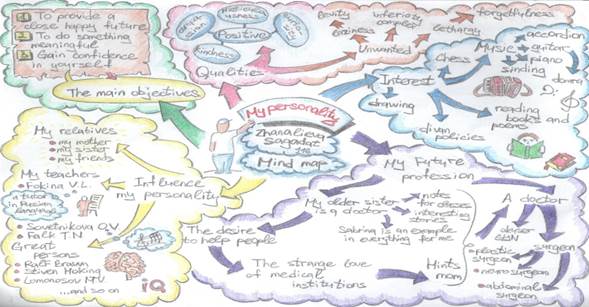 1. To provide a
close happy future
2. To do something
meaningful
3. Gain confidence
in yourself
The main objectives
Positive
kindness
Qualities
levity
laziness
inferiority
complex
lethargy
forgetfulness
Unwanted
My personality
Sagadat
Mind map
Interest
Chess
Music
accordion
guitar
piano
drawing
reading
books and
poems
My relatives
• my mother
• my sister
• my friends
My teachers
• Fokina V.L.
a tutor
in Russian
language
• Sovetnikova O.V
• Falk T.N
Great
persons
• Stiven Hoking
• Lomonosov M.V.
...and so on
IQ
Influence
my personality
My Future
profession
My older sister
is a doctor
notes
interesting
stories
Sabrina is an example
in everything for me.
The desire
to help people
The strange love
of medical
institutions
Hints
mom
A doctor
surgeon
• plastic
surgeon
• neurosurgeon
• abdominal
surgeon